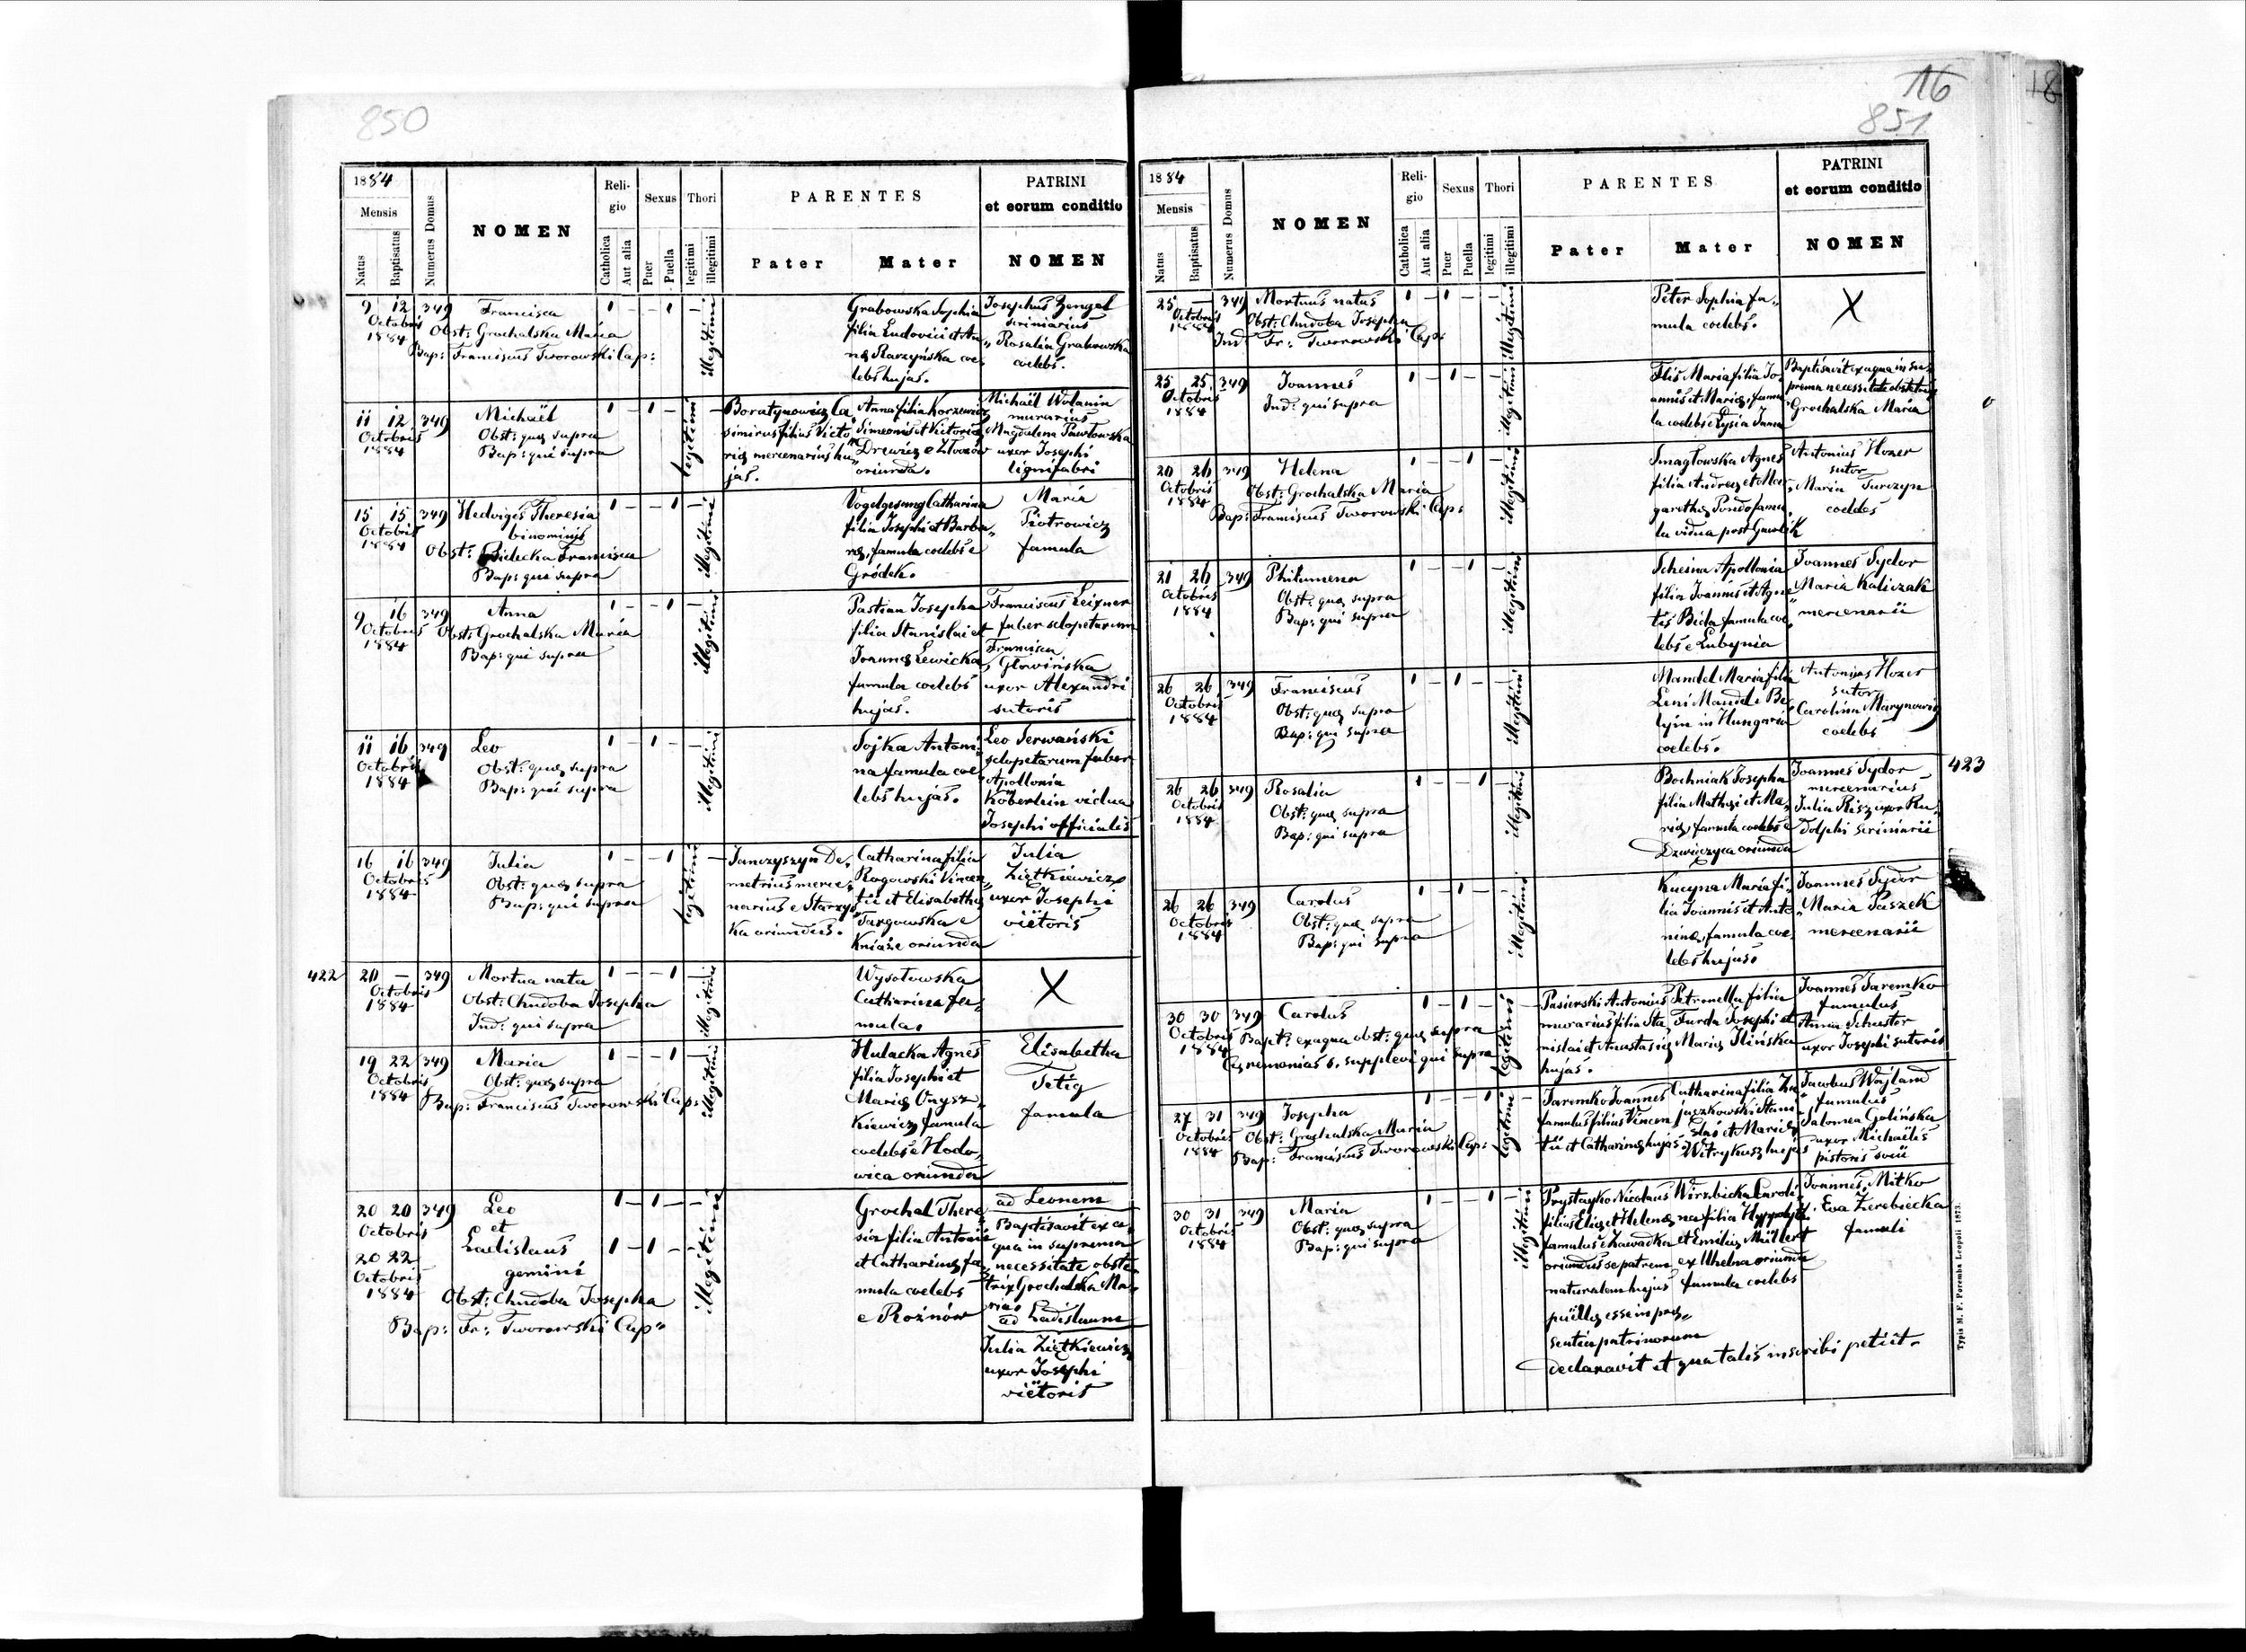 850
1884
Mensis
Natus
Baptisatus
Numerus Domus
NOMEN
Religio
Catholica
Aut alia
Sexus
Puer
Puella
Thori
legitimi
illegitimi
PARENTES
Pater
Mater
PATRINI
et eorum conditio
NOMEN
9 12 349
Octobris
1884
Francisca
Obst: Grochalska Maria
Bap: Franciscus Tworowski Cap:
1 – – 1 –
illegitimi
Grabowska Sophia
filia Ludovici et An„
næ Raczyńska coe„
lebs hujas.
Josephus Zengel
scriniarius
Rosalia Grabowska
coelebs.
11 12 349
Octobris
1884
Michaël
Obst: quæ supra
Bap: qui supra
1 – 1 –
legitimi
–
Boratynowicz Ca„
simirus filius Victo„
riæ mercenarius hu„
jas.
Anna filia Korzewicz
Simeonis et Victoriæ
Drewicz e Zloczów
oriunda.
Michaël Wolanin
murarius
Magdalena Pawłowska
uxor Josephi
lignifabri
15 15 349
Octobris
1884
Hedvigis Theresia
binominis
Obst: Bidecka Francisca
Bap: qui supra
1 – – 1 –
illegitimi
Vogelgesang Catharina
filia Josephi et Barba„
ræ, famula coelebs e
Gródek.
Maria
Piotrowicz
famula
9 16 349
Octobris
1884
Anna
Obst: Grochalska Maria
Bap: qui supra
1 – – 1 –
illegitimi
Pastian Josepha
filia Stanislai et
Joannæ Lewicka
famula coelebs
hujas.
Franciscus Leixner
faber sclopetarum
Francisca
Głowińska
uxor Alexandri
sutoris
11 16 349
Octobris
1884
Leo
Obst: quæ supra
Bap: qui supra
1 – 1 – –
illegitimi
Sojka Antoni„
na famula coe„
lebs hujas.
Leo Serwański
sclopetarum faber
Apollonia
Köberlein vidua
Josephi officialis
16 16 349
Octobris
1884
Julia
Obst: quæ supra
Bap: qui supra
1 – – 1
legitimi
–
Janczyszyn De„
metrius merce„
narius e Starzys„
ka oriundus.
Catharina filia
Rogowski Vincen„
tii et Elisabethæ
Targowska e
Kniaże oriunda
Julia
Ziętkiewicz
uxor Josephi
viëtoris
422
20 – 349
Octobris
1884
Mortua nata
Obst: Chudoba Josepha
Ind: qui supra
1 – – 1 –
illegitimi
Wysotowska
Catharina fa„
mula.
X
19 22 349
Octobris
1884
Maria
Obst: quæ supra
Bap: Franciscus Tworowski Cap:
1 – – 1 –
illegitimi
Hulacka Agnes
filia Josephi et
Mariæ Onysz„
kiewicz famula
coelebs e Hodo„
wica oriunda
Elisabetha
Tetig
famula
20 20 349
Octobris
20 22
Octobris
1884
Leo
et
Ladislaus
gemini
Obst: Chudoba Josepha
Bap: Fr: Tworowski Cap:
1 – 1 – –
1 – 1 – –
illegitimi
Grochal There„
sia filia Antonii
et Catharinæ fa„
mula coelebs
e Rożnów
ad Leonem
Baptisavit ex a„
qua in suprema
necessitate obste„
trix Grochalska Ma„
ria
ad Ladislaum
Julia Ziętkiewicz
uxor Josephi
viëtoris
16
18
851
1884
Mensis
Natus
Baptisatus
Numerus Domus
NOMEN
Religio
Catholica
Aut alia
Sexus
Puer
Puella
Thori
legitimi
illegitimi
PARENTES
Pater
Mater
PATRINI
et eorum conditio
NOMEN
25 – 349
Octobris
1884
Mortuus natus
Obst: Chudoba Josepha
Ind Fr: Tworowski Cap:
1 – 1 – –
illegitimi
Peter Sophia fa„
mula coelebs.
X
25 25 349
Octobris
1884
Joannes
Ind: qui supra
1 – 1 – –
illegitimi
Flis Maria filia Jo„
annis et Mariæ, famu„
la coelebs e Lysia Jama
Baptisavit ex aqua in su„
prema necessitate obstetrix
Grochalska Maria
20 26 349
Octobris
1884
Helena
Obst: Grochalska Maria
Bap: Franciscus Tworowski Cap:
1 – – 1 –
illegitimi
Smagłowska Agnes
filia Andreæ et Mar„
garethæ Pondo famu„
la vidua post Gawlik
Antonius Hozer
sutor
Maria Turczyn
coelebs
21 26 349
Octobris
1884
Philumena
Obst: quæ supra
Bap: qui supra
1 – – 1 –
illegitimi
Scheina Apollonia
filia Joannis et Agne„
tis Bida famula coe„
lebs e Lubynia
Joannes Sydor
Maria Kaliczak
mercenarii
26 26 349
Octobris
1884
Franciscus
Obst: quæ supra
Bap: qui supra
1 – 1 – –
illegitimi
Mandel Maria filia
Leni Mandel e Be„
lyin in Hungaria
coelebs.
Antonius Hozer
sutor
Carolina Marynowicz
coelebs
423
26 26 349
Octobris
1884
Rosalia
Obst: quæ supra
Bap: qui supra
1 – – 1 –
illegitimi
Bochniak Josepha
filia Mathæi et Ma„
riæ, famula coelebs e
Dzwiczyca oriunda
Joannes Sydor
mercenarius
Julia Risz uxor Ru„
dolphi scriniarii
26 26 349
Octobris
1884
Carolus
Obst: quæ supra
Bap: qui supra
1 – 1 – –
illegitimi
Kucyna Maria fi„
lia Joannis et Anto„
ninæ, famula coe„
lebs hujas.
Joannes Sydor
Maria Paszek
mercenarii
30 30 349
Octobris
1884
Carolus
Bapt: ex aqua obst: quæ supra
Cæremonias s. supplevi qui supra
1 – 1 –
legitimi
–
Pasierski Antonius
murarius filia Sta„
nislai et Anastasiæ
hujas.
Petronella filia
Furda Josephi et
Mariæ Ilińska
Joannes Jaremko
famulus
Anna Schuster
uxor Josephi sutoris
27 31 349
Octobris
1884
Josepha
Obst: Grochalska Maria
Bap: Franciscus Tworowski Cap:
1 – – 1
legitimi
–
Jaremko Joannes
famulus filius Vincen„
tii et Catharinæ hujas.
Catharina filia Za„
jaczkowski Stani„
slai et Mariæ
Witrykusz hujas
Jacobus Wojland
famulus
Salomea Golińska
uxor Michaëlis
pistoris socii
30 31 349
Octobris
1884
Maria
Obst: quæ supra
Bap: qui supra
1 – – 1 –
illegitimi
Prystayko Nicolaus
filius Eliæ et Helenæ
famulus e Zawadka
oriundus se patrem
naturalem hujus
puëllæ esse in præ„
sentia patrinorum
declaravit et qua talis inscribi petiit.
Wirzbicka Caroli„
na filia Hyppolyti
et Emiliæ Müllert
ex Uhelna oriunda
famula coelebs
Joannes Mitko
Eva Zerebiecka
famuli
Typis M. F. Poremba Leopoli 1873.